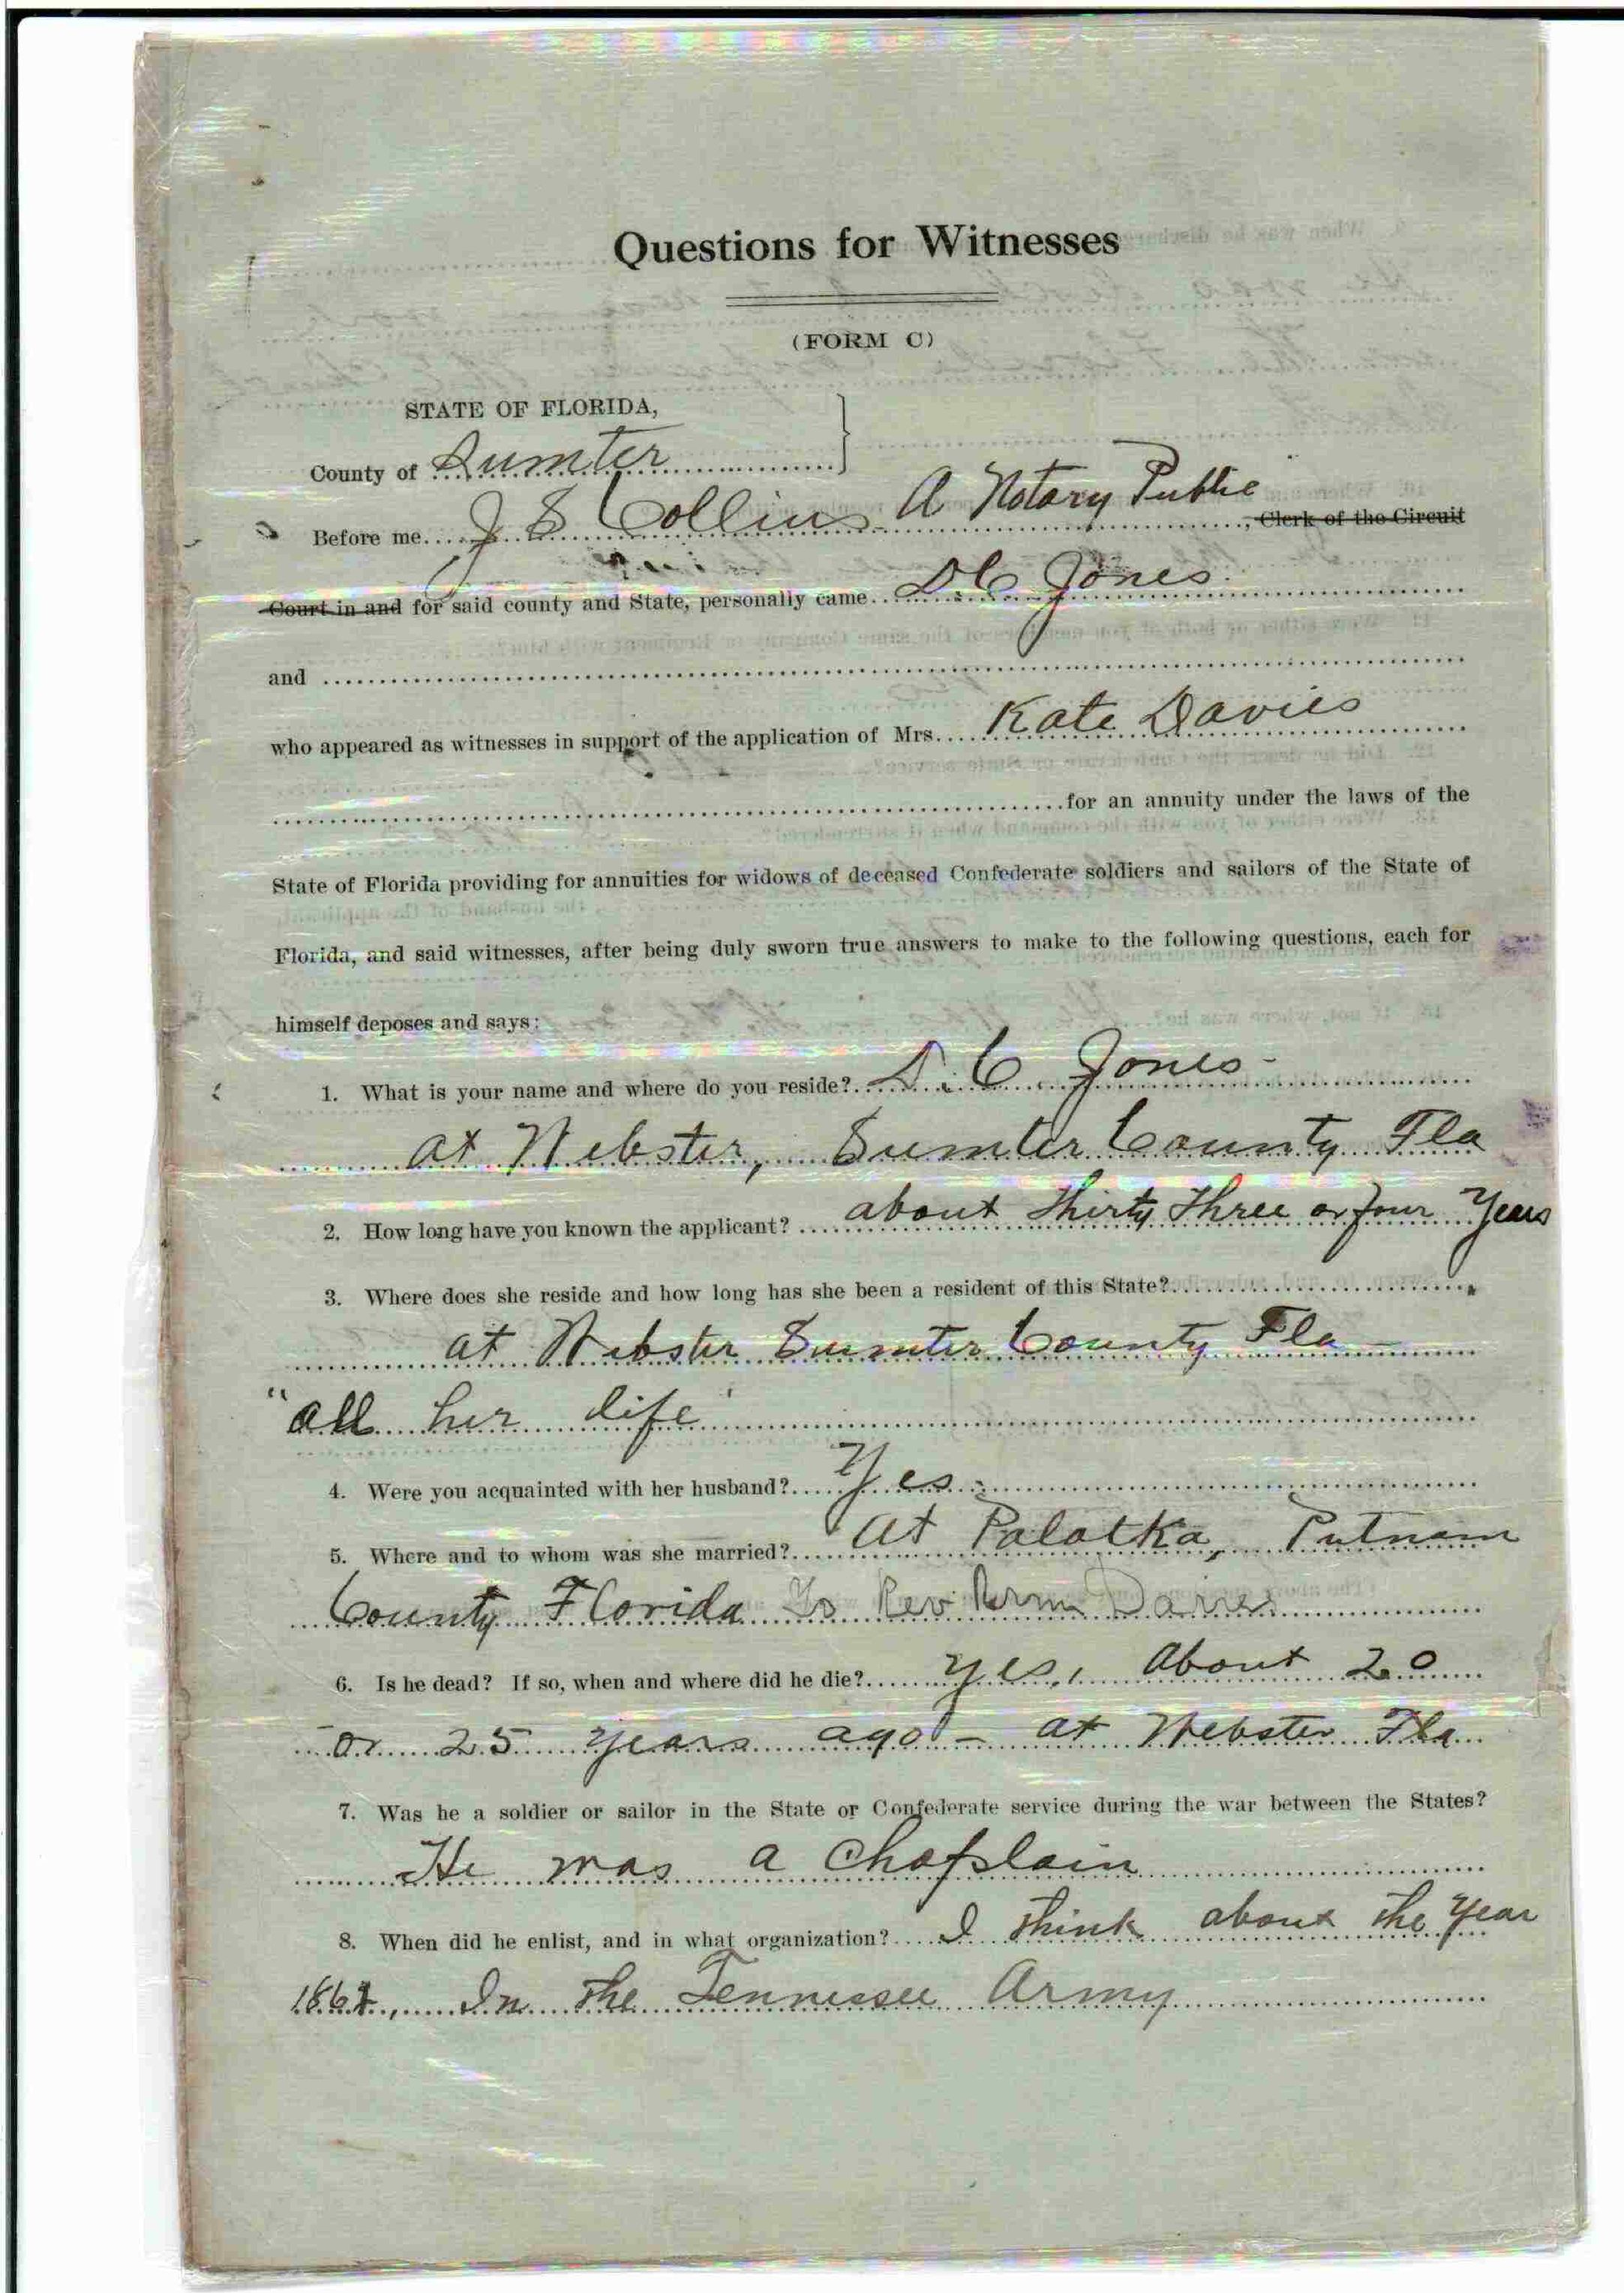 Questions for Witnesses
(FORM C)
STATE OF FLORIDA,
County of Sumter
Before me J S Collins A Notary Public, Clerk of the Circuit
Court in and for said county and State, personally came D. C. Jones
and
who appeared as witnesses in support of the application of Mrs. Kate Davies
for an annuity under the laws of the
State of Florida providing for annuities for widows of deceased Confederate soldiers and sailors of the State of
Florida, and said witnesses, after being duly sworn true answers to make to the following questions, each for
himself deposes and says:
1. What is your name and where do you reside? D. C. Jones
at Webster, Sumter County Fla
2. How long have you known the applicant? about thirty three or four Years
3. Where does she reside and how long has she been a resident of this State?
at Webster Sumter County Fla
"all her life"
4. Were you acquainted with her husband? Yes.
5. Where and to whom was she married? At Palatka, Putnam
County Florida To Rev Davies
6. Is he dead? If so, when and where did he die? yes, About 20
or 25 years ago - at Webster Fla
7. Was he a soldier or sailor in the State or Confederate service during the war between the States?
He was a Chaplain
8. When did he enlist, and in what organization? I think about the Year
In the Tennessee Army